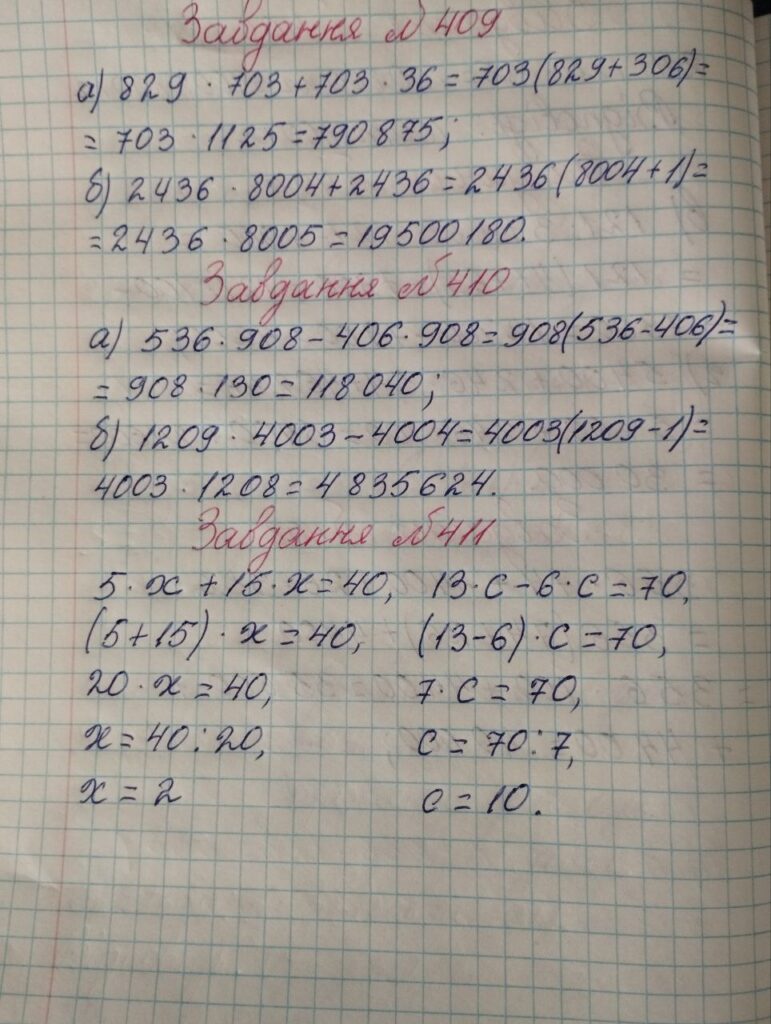 Завдання №409
а) 829 · 703 + 703 · 36 = 703(829 + 306) =
= 703 · 1125 = 790 875;
б) 2436 · 8004 + 2436 = 2436(8004 + 1) =
= 2436 · 8005 = 19500 180.
Завдання №410
а) 536 · 908 - 406 · 908 = 908(536 - 406) =
= 908 · 130 = 118 040;
б) 1209 · 4003 - 4004 = 4003(1209 - 1) =
4003 · 1208 = 4 835 624.
Завдання №411
5 · x + 15 · x = 40, 13 · c - 6 · c = 70,
(5 + 15) · x = 40, (13 - 6) · c = 70,
20 · x = 40, 7 · c = 70,
x = 40 : 20, c = 70 : 7,
x = 2 c = 10.